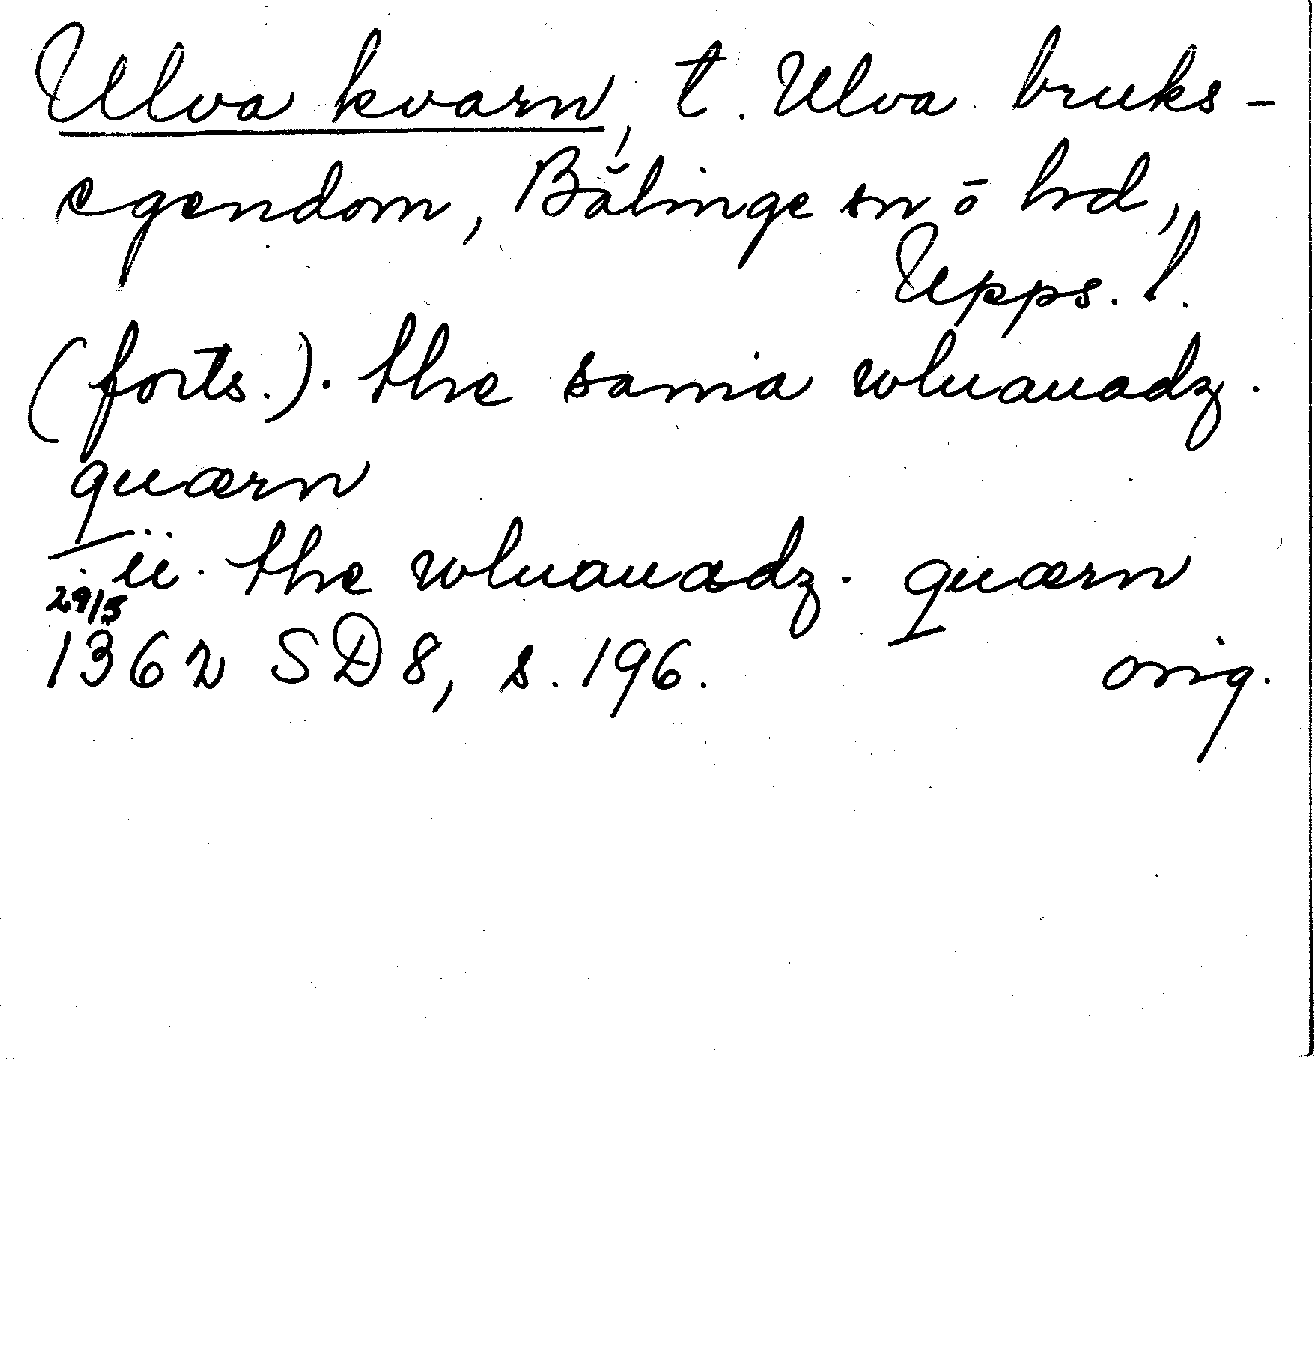 Ulva kvarn, t. Ulva bruks-
egendom, Bälinge sn ō hd,
Upps. l.
(forts.). the sama wluauadz.
quærn
ii. the wluauadz. quærn
29/5
1362 SD8, s. 196. orig.